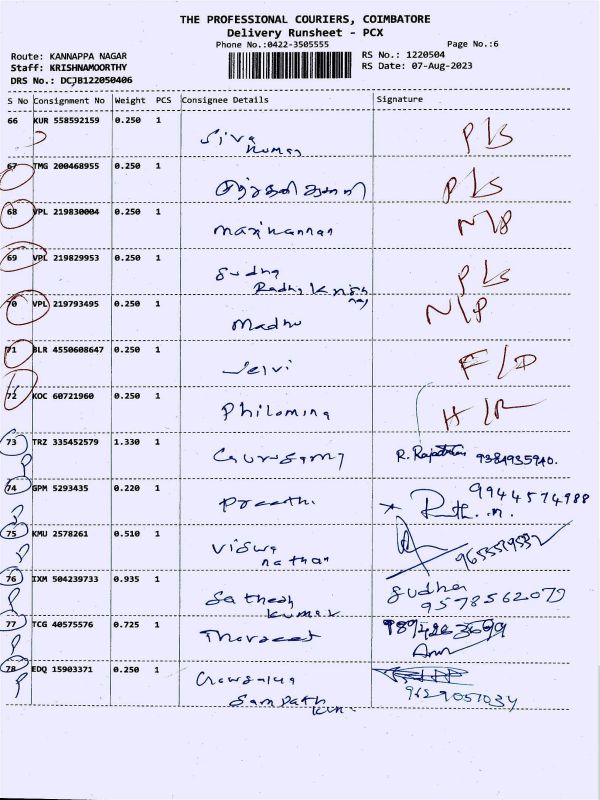 THE PROFESSIONAL COURIERS, COIMBATORE
Delivery Runsheet - PCX
Phone No.:0422-3505555 Page No.:6
Route: KANNAPPA NAGAR RS No.: 1220504
Staff: KRISHNAMOORTHY RS Date: 07-Aug-2023
DRS No.: DCJB122050406
S No Consignment No Weight PCS Consignee Details Signature
66 KUR 558592159 0.250 1 Siva P/S
Kumar
67 TMG 200468955 0.250 1 P/S
68 VPL 219830004 0.250 1 Manikannan N/P
69 VPL 219829953 0.250 1 Sudha P/S
Radha Krish
naj
70 VPL 219793495 0.250 1 Madhu N/P
71 BLR 4550608647 0.250 1 Selvi F/D
72 KOC 60721960 0.250 1 Philomina H/R
73 TRZ 335452579 1.330 1 Gurusamy R. 9384935940.
74 GPM 5293435 0.220 1 Preethi 9944574988
75 KMU 2578261 0.510 1 Viswa
nathan
76 IXM 504239733 0.935 1 Sathesh Sudha
Kumar 9578562079
77 TCG 40575576 0.725 1
78 EDQ 15903371 0.250 1 9629051034
Sampath